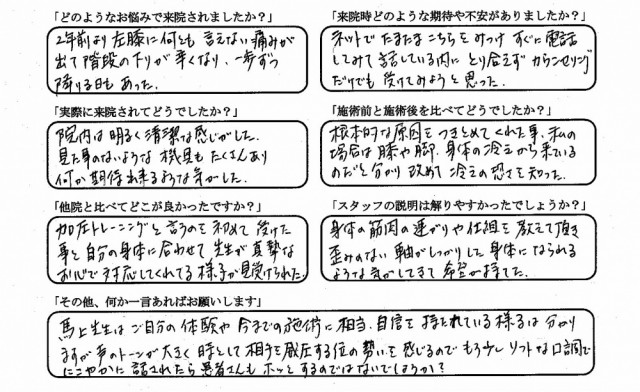 「どのようなお悩みで来院されましたか？」
2年前より左膝に何とも言えない痛みが
出て階段の下りが辛くなり、一歩ずつ
降りる日もあった。
「来院時どのような期待や不安がありましたか？」
ネットでたまたまこちらをみつけすぐに電話
してみて話している内にとり合えずカウンセリング
だけでも受けてみようと思った。
「実際に来院されてどうでしたか？」
院内は明るく清潔な感じがした。
見た事のないような機具もたくさんあり
何か期待出来るような気がした。
「施術前と施術後を比べてどうでしたか？」
根本的な原因をつきとめてくれた事、私の
場合は膝や脚、身体の冷えから来ている
のだと分かり改めて冷えの恐さを知った。
「他院と比べてどこが良かったですか？」
加圧トレーニングと言うのを初めて受けた
事と自分の身体に合わせて先生が真摯な
お心で対応してくれてる様子が見受けられた
「スタッフの説明は解りやすかったでしょうか？」
身体の筋肉の連がりや仕組を教えて頂き
歪みのない軸がしっかりした身体になられる
ような気がしてきて希望が持てた。
「その他、何か一言あればお願いします」
馬上先生はご自分の体験や今までの施術に相当、自信を持たれている様子は分かり
ますが声のトーンが大きく時として相手を威圧する位の勢いを感じるのでもう少しソフトな口調で
にこやかに話されたら患者さんもホッとするのではないでしょうか？